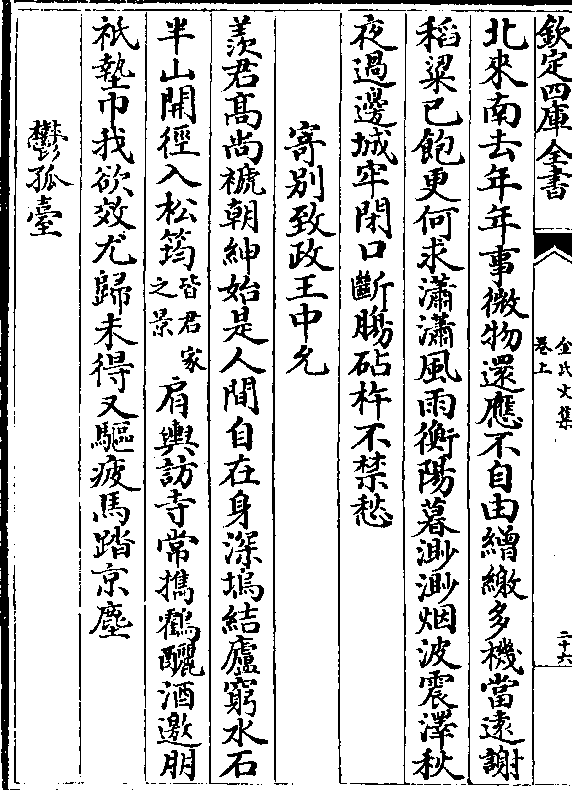 欽定四庫全書
金氏文集
卷上
二十六
北來南去年年事微物還應不自由繒繳多機當遠謝
稻粱已飽更何求瀟瀟風雨衡陽暮渺渺烟波震澤秋
夜過邊城牢閉口斷腸砧杵不禁愁
寄别致政王中允
羨君髙尚褫朝紳始是人間自在身深塢結廬窮水石
半山開徑入松筠皆君家之景肩輿訪寺常攜鶴釃酒邀朋
祇墊巾我欲效尤歸未得又驅疲馬踏京塵
鬱孤臺